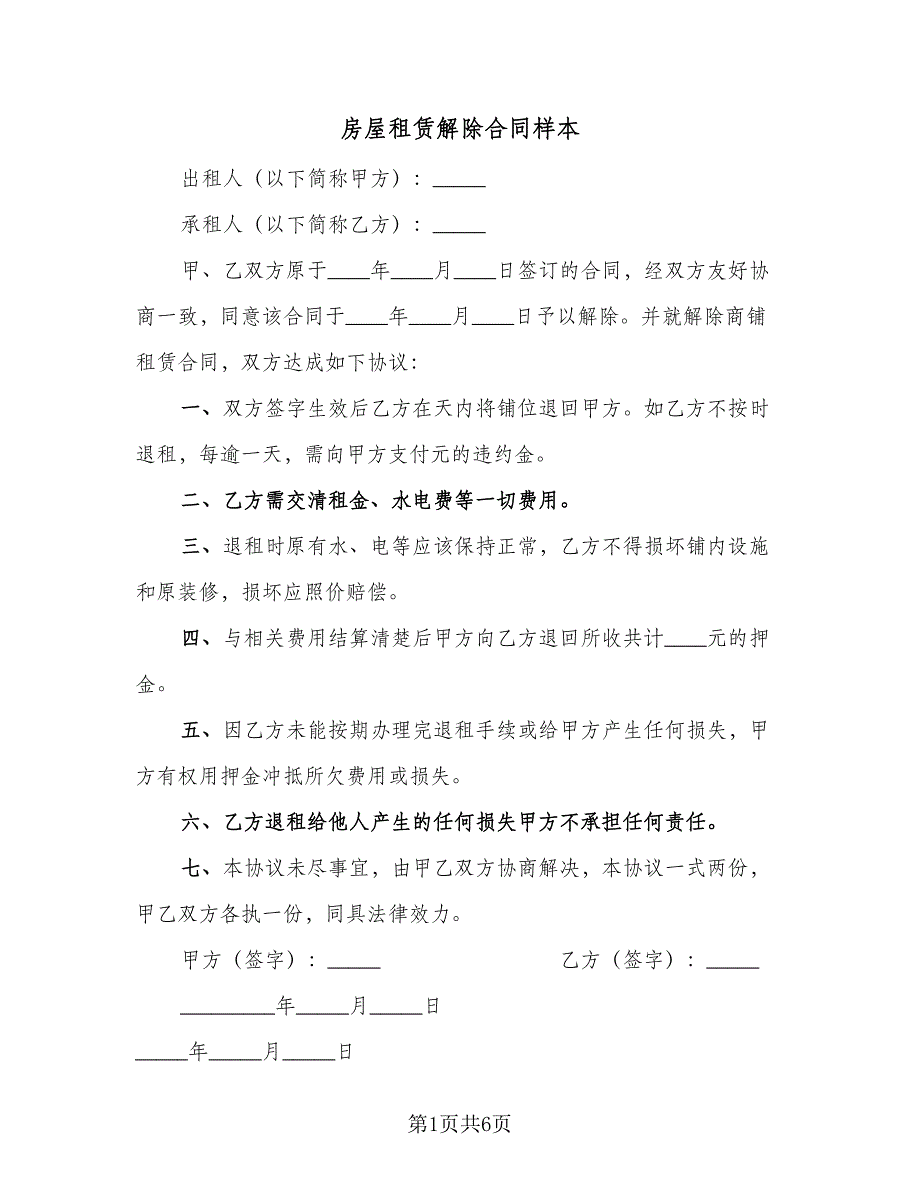 房屋租赁解除合同样本
出租人（以下简称甲方）：_____
承租人（以下简称乙方）：_____
甲、乙双方原于____年____月____日签订的合同，经双方友好协
商一致，同意该合同于____年____月____日予以解除。并就解除商铺
租赁合同，双方达成如下协议：
一、双方签字生效后乙方在天内将铺位退回甲方。如乙方不按时
退租，每逾一天，需向甲方支付元的违约金。
二、乙方需交清租金、水电费等一切费用。
三、退租时原有水、电等应该保持正常，乙方不得损坏铺内设施
和原装修，损坏应照价赔偿。
四、与相关费用结算清楚后甲方向乙方退回所收共计____元的押
金。
五、因乙方未能按期办理完退租手续或给甲方产生任何损失，甲
方有权用押金冲抵所欠费用或损失。
六、乙方退租给他人产生的任何损失甲方不承担任何责任。
七、本协议未尽事宜，由甲乙双方协商解决，本协议一式两份，
甲乙双方各执一份，同具法律效力。
甲方（签字）：_____ 乙方（签字）：_____
_________年_____月_____日
_____年_____月_____日
第1页共6页